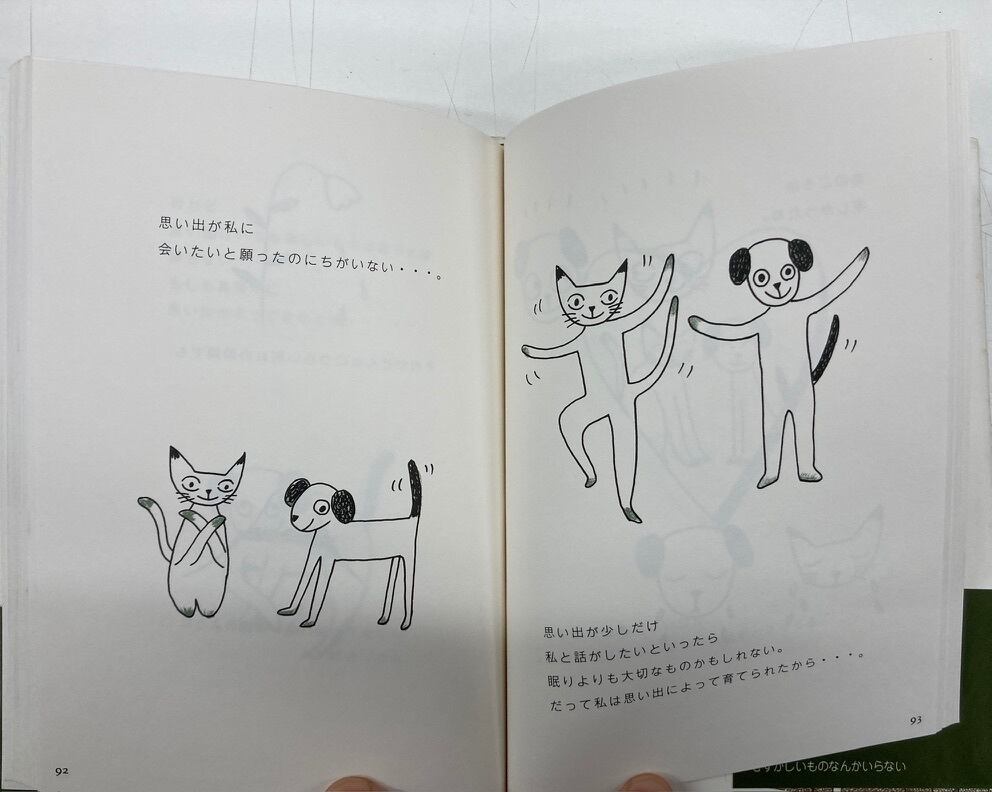 思い出が私に
会いたいと願ったのにちがいない・・・。
92
思い出が少しだけ
私と話がしたいといったら
眠りよりも大切なものかもしれない。
だって私は思い出によって育てられたから・・・。
93
むずかしいものなんかいらない